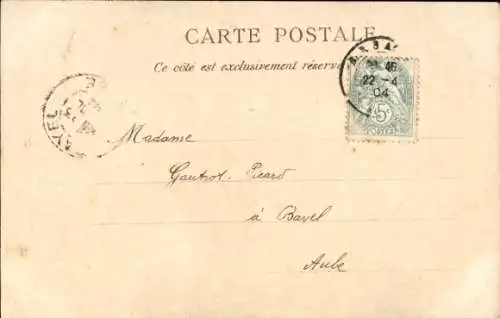 CARTE POSTALE
Ce côté est exclusivement réservé
22 - 4
04
5
POSTES
Madame
Gautrot-Picard
à Bavel
Aube